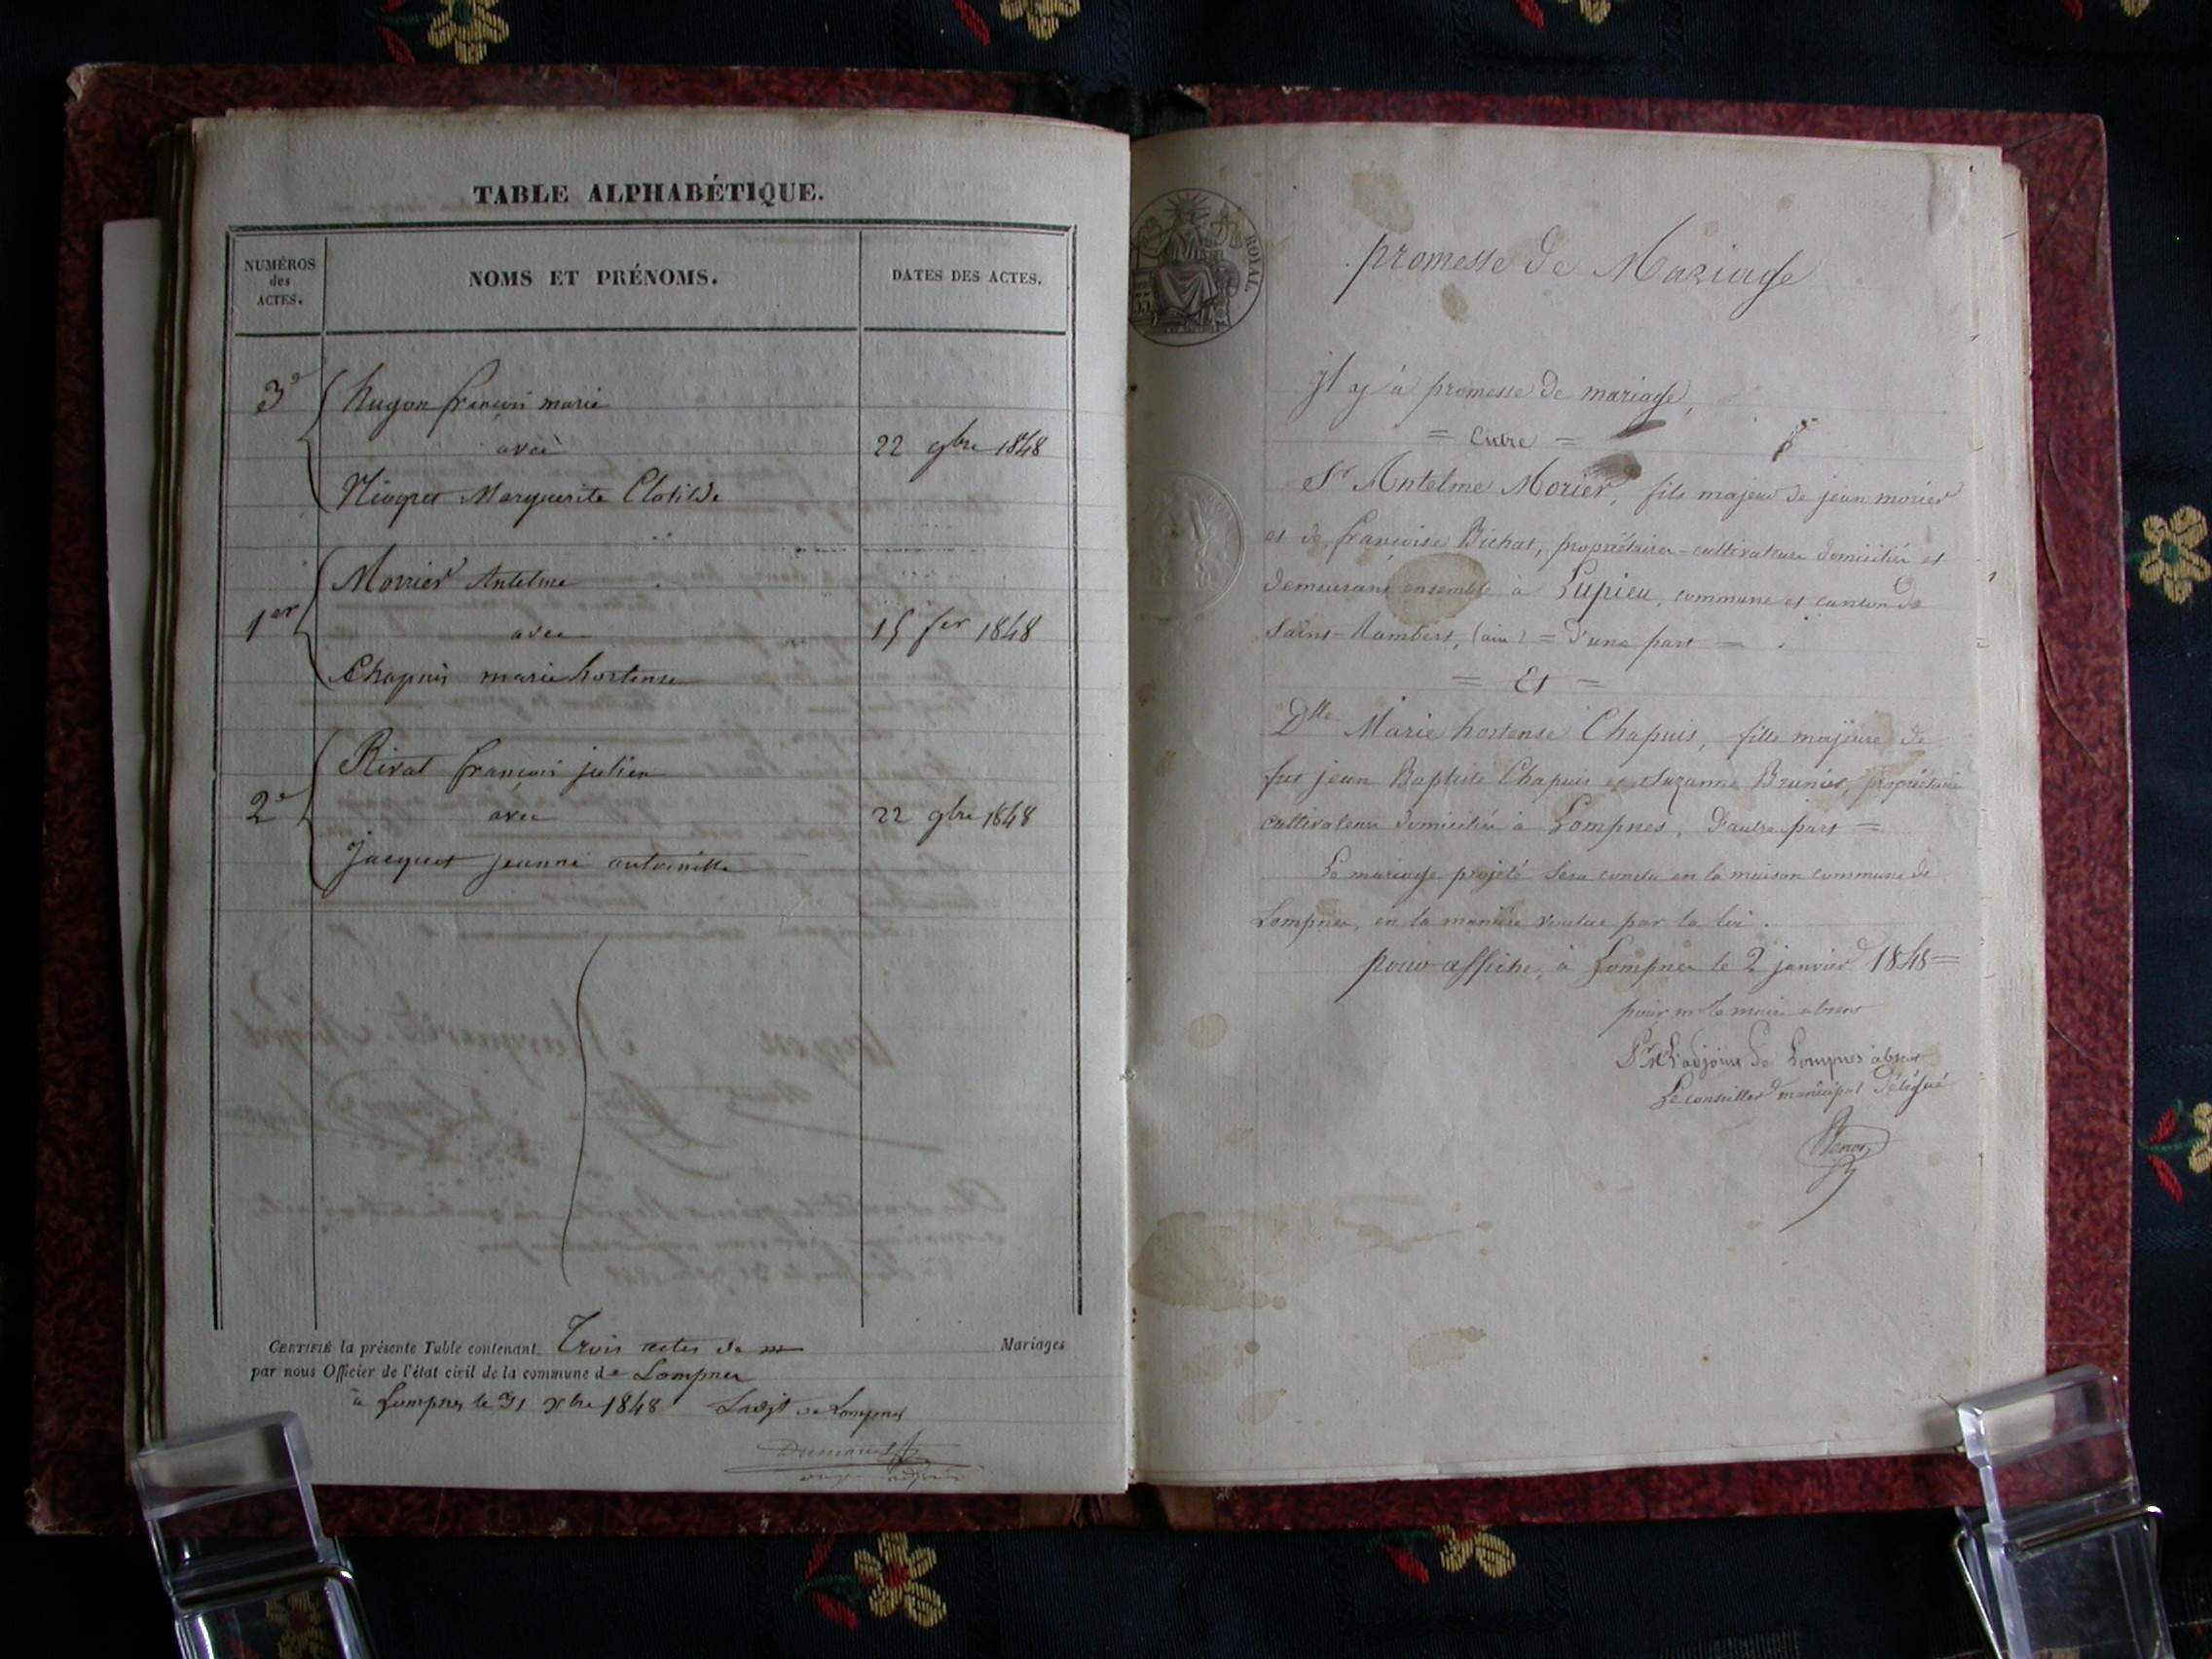 TABLE ALPHABÉTIQUE.
NUMÉROS
des
ACTES.
NOMS ET PRÉNOMS.
DATES DES ACTES.
3e
hugon françois marie
avec
22 9bre 1848
Marguerite Clotilde
Morrier Antelme
1er
avec
15 fer 1848
Chapuis marie hortense
Rivat françois julien
2e
avec
22 9bre 1848
Jacquet jeanne antoinette
CERTIFIÉ la présente Table contenant Trois actes de m Mariages
par nous Officier de l'état civil de la commune de Lompnes
à Lompnes le 31 Xbre 1848 L'adjt de Lompnes
ROYAL.
promesse de Mariage
jl y a promesse de mariage,
= Entre =
Sr Antelme Morier, fils majeur de jean morier
et de françoise Bichat, propriétaires-cultivateurs domiciliés et
demeurant ensemble à Lupieu, commune et canton de
Saint-Rambert, (ain) = d'une part =
= Et =
Dlle Marie hortense Chapuis, fille majeure de
feu jean Baptiste Chapuis et Suzanne Brunier, propriétaires
cultivateurs domiciliés à Lompnes, d'autre part =
Le mariage projeté sera conclu en la maison commune de
Lompnes, en la manière voulue par la loi.
pour affiche, à Lompnes le 2 janvier 1848 =
pour mr le maire absent
Pr L'adjoint de Lompnes absent
Le conseiller municipal délégué